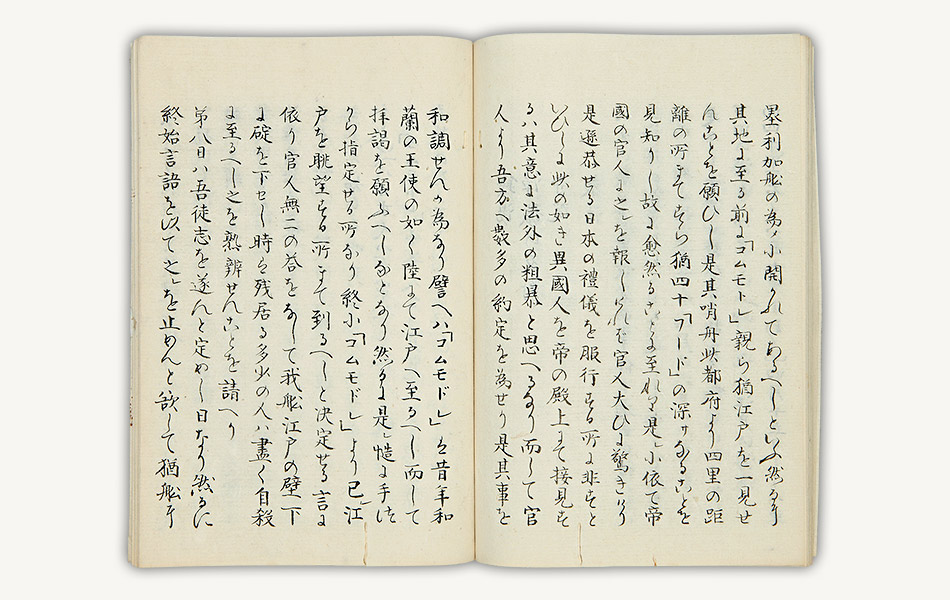 墨利加舩の為メ小開かれてあるへしといふ然るに
其地ニ至る前ニ「コムモドレ」親ら猶江戸を一見せ
んことを願ひし是其哨舟此都府より四里の距
離の所まてすら猶四十「フード」の深サなることを
見知りし故ニ愈然ることニ至れり是ニ依て帝
國の官人ニ之を報しけれハ官人大ひニ驚きけり
是遜恭せる日本の禮儀を服行する所ニ非すと
いひしに此の如き異國人を帝の殿上まて接見す
るハ其意ニ法外の粗暴と思へるなり而して官
人より吾方へ数多の約定を為せり是其事を
和調せんか為なり譬へハ「コムモドレ」ハ昔年和
蘭の王使の如く陸にて江戸へ至るへし而して
拝謁を願ふへしなとなり然るに是ニ手は
から指定せる所なり終小「コムモドレ」より已ニ江
戸を眺望する所まて到るへしと決定せる言ニ
依り官人無二の答をなして我舩江戸の壁下
に碇を下セし時ハ残居る多少の人ハ盡く自殺
に至るへし之を熟辨せんことを請へり
第八日ハ吾徒志を遂んと定めし日なり然るに
終始言語を以て之を止めんと欲して猶舩